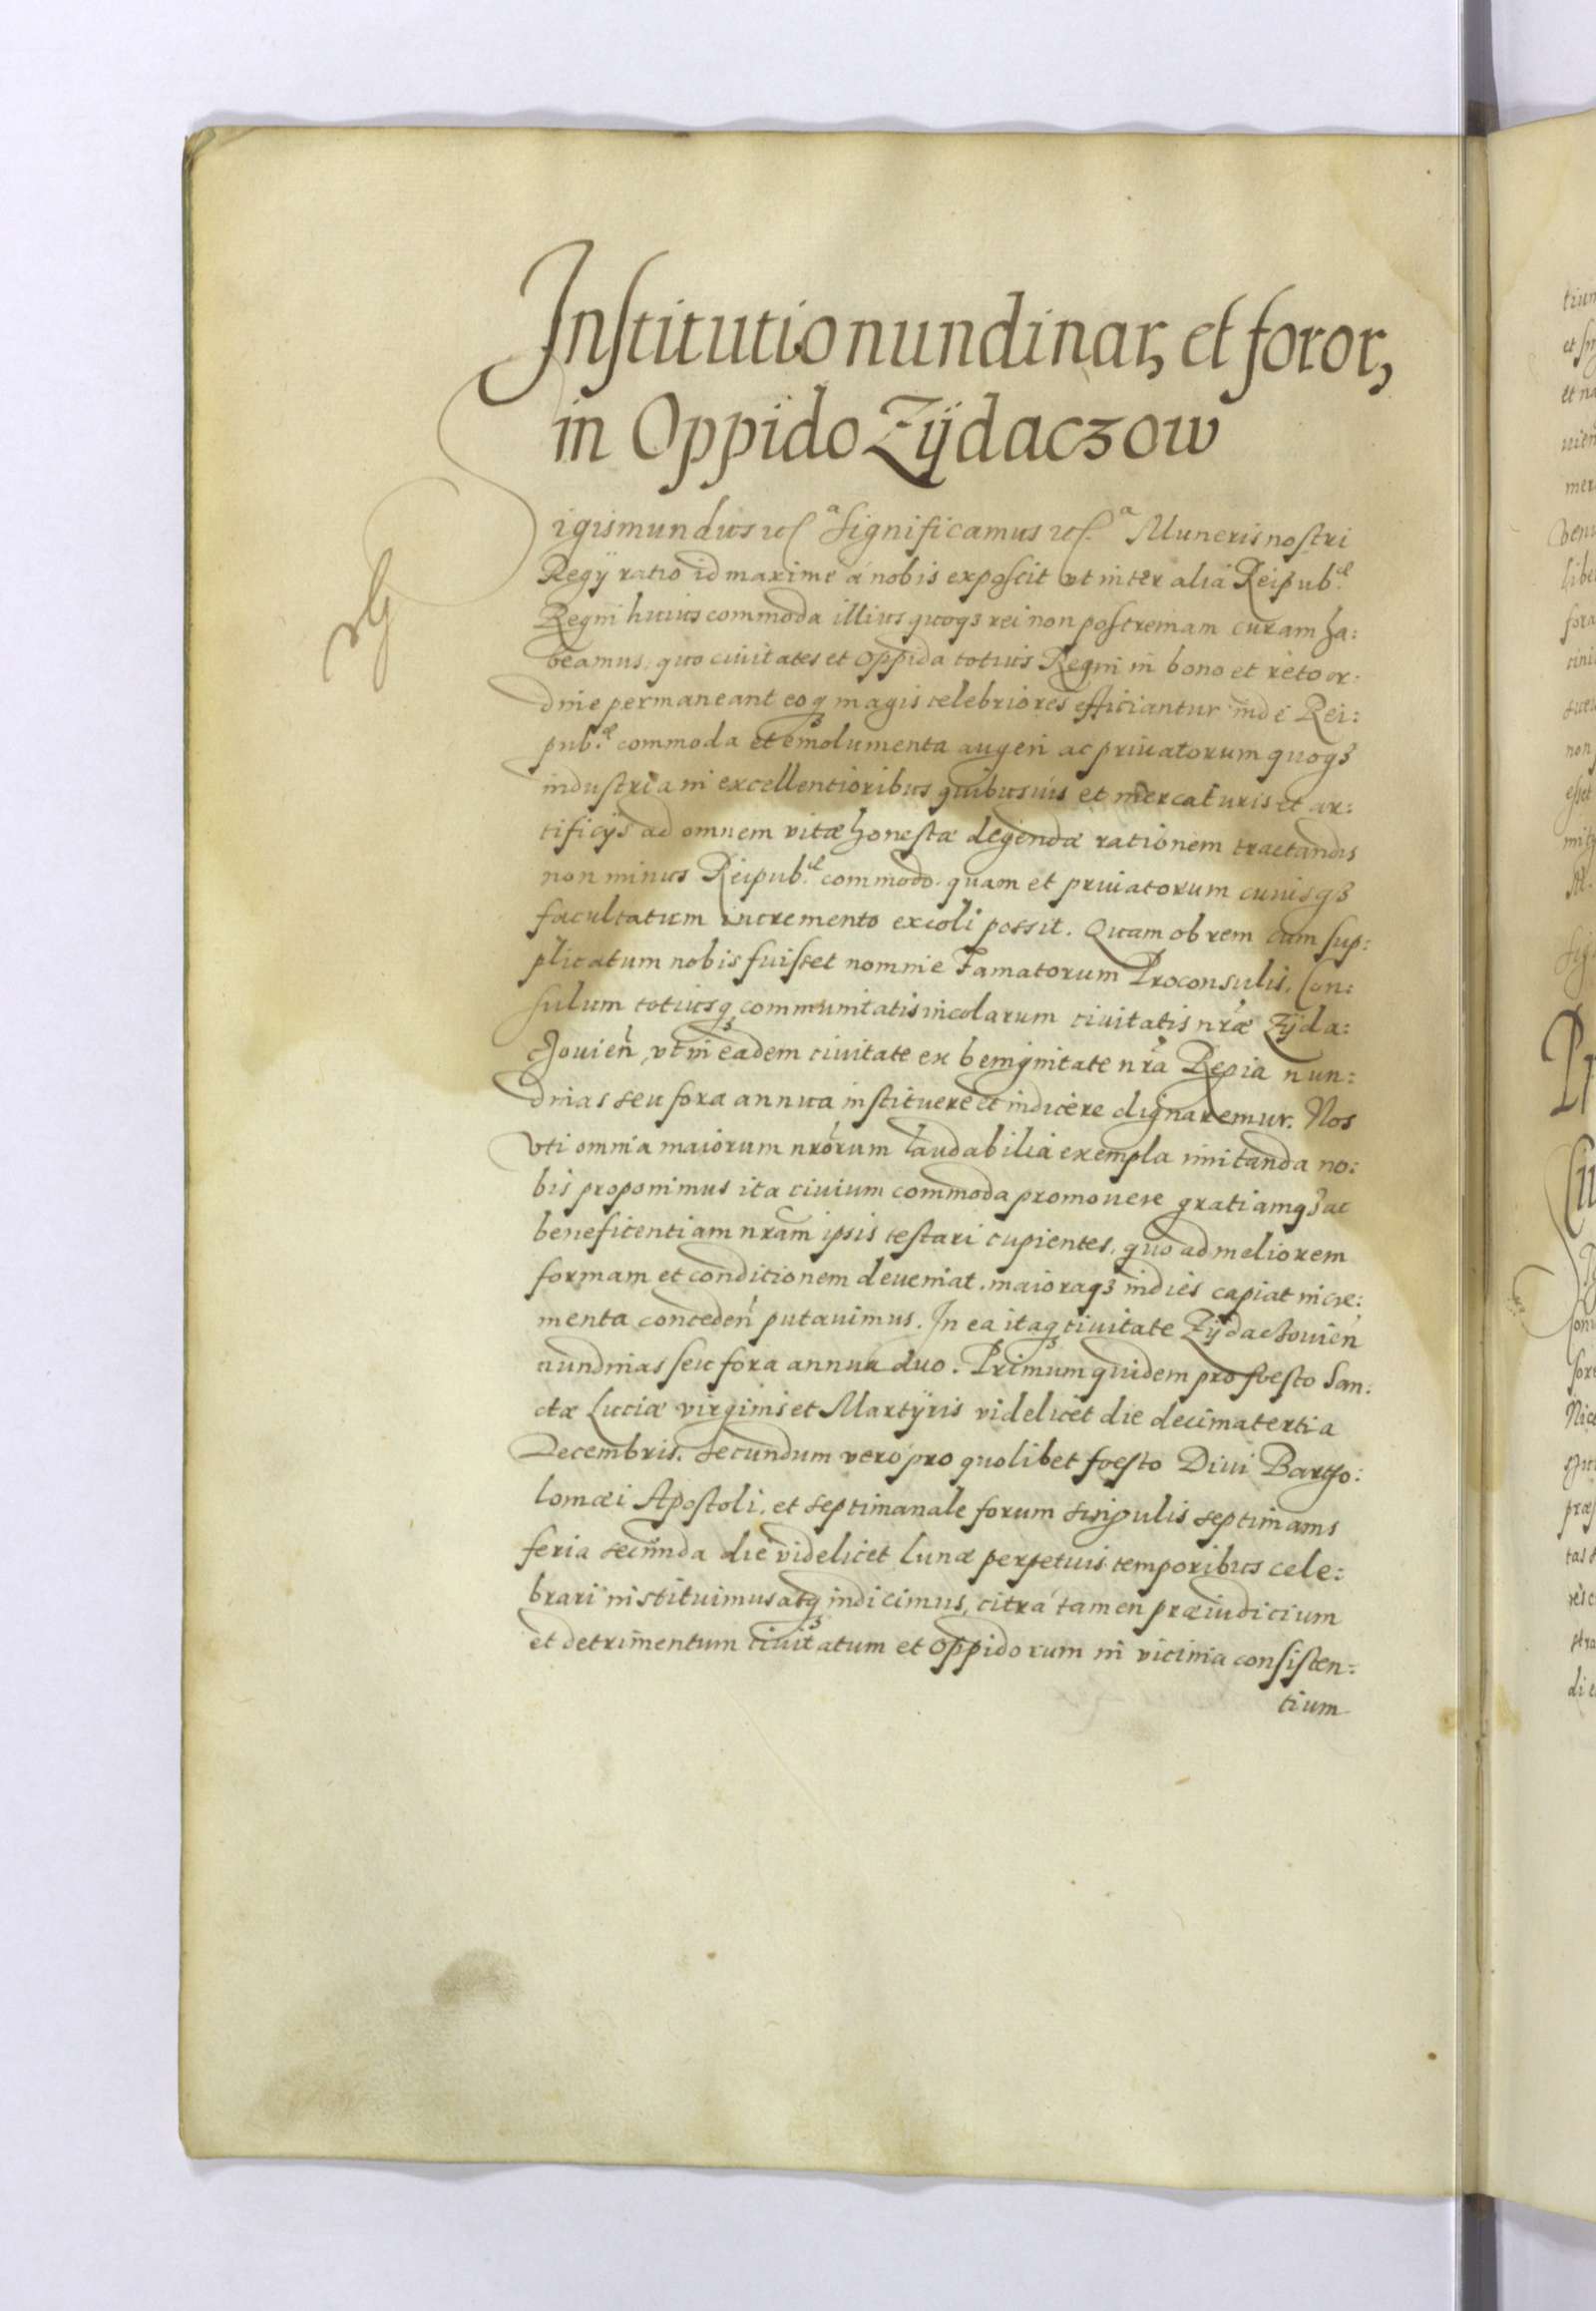 Institutio nundinar, et foror,
in Oppido Zÿdaczow
igismundus ꝛcͣ. Significamus ꝛcͣ. Muneris nostri
Regÿ ratio id maxime á nobis exposcit vt inter alia Reipub.ͣᵉ
Regni huius commoda illius quoqꝫ rei non postremam curam ha:
beamus, quo ciuitates et oppida totius Regni in bono et rèto or:
dine permaneant eoqꝫ magis celebriores efficiantur inde Rei:
pub.ͣᵉ commoda et emolumenta augeri ac priuatorum quoqꝫ
industria in excellentioribus quibusuis et mercaturis et ar:
tificÿs ad omnem vitæ honestæ degendæ rationem tractandis
non minus Reipub.ͣᵉ commodo. quam et priuatorum cuiusqꝫ
facultatum incremento excoli possit. Quam ob rem cum sup:
plicatum nobis fuisset nomine Famatorum Proconsulis, Con:
sulum totiusqꝫ communitatis incolarum ciuitatis nr̃æ Zÿda:
chouieñ, vt in eadem ciuitate ex benignitate nr̃a Regia nun:
dinas seu fora annua instituere et indicere dignaremur. Nos
vti omnia maiorum nr̃orum laudabilia exempla imitanda no:
bis proponimus ita ciuium commoda promouere gratiamqꝫ ac
beneficentiam nr̃am ipsis testari cupientes, quo ad meliorem
formam et conditionem deueniat. maioraqꝫ indies capiat incre:
menta concedeñ putauimus. In ea itaqꝫ ciuitate Zÿdachouieñ
nundinas seu fora annua duo. Primum quidem pro foesto San:
ctæ Luciæ virginis et Martÿris videlicet die decimatertia
Decembris. secundum vero pro quolibet foesto Diui Bartho:
lomæi Apostoli, et septimanale forum singulis septimanis
feria secunda die videlicet lunæ perpetuis temporibus cele:
brari instituimus atqꝫ indicimus, citra tamen præiudicium
et detrimentum ciuitatum et oppidorum in vicinia consisten:
tium